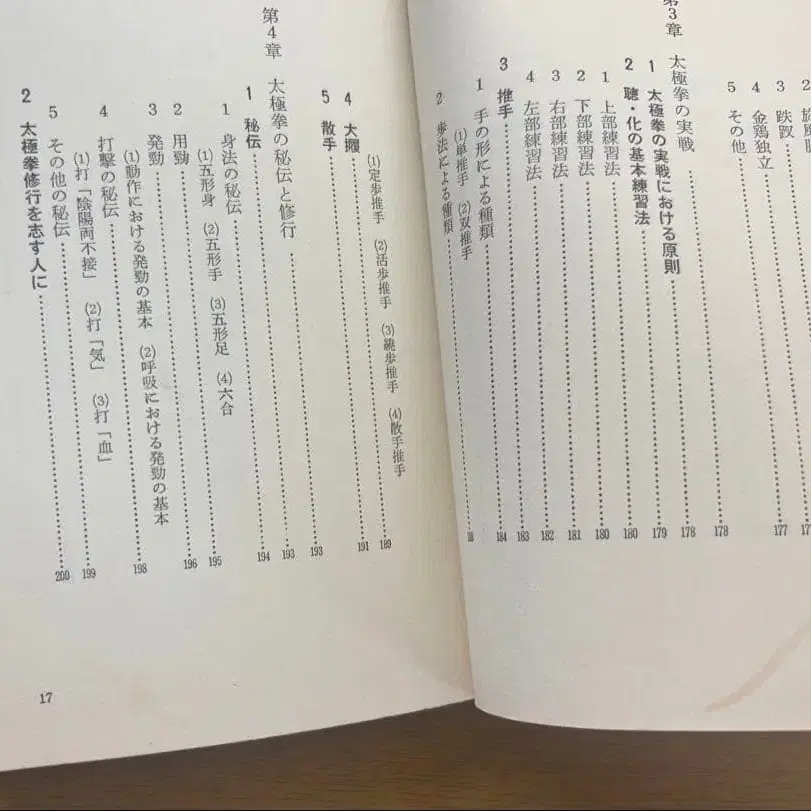 3 跌趺……177
4 金鶏独立……177
5 その他……178
第3章 太極拳の実戦……178
1 太極拳の実戦における原則……179
2 聴・化の基本練習法……180
1 上部練習法……180
2 下部練習法……181
3 右部練習法……182
4 左部練習法……183
3 推手……184
1 手の形による種類
(1)単推手 (2)双推手
2 歩法による種類
(1)定歩推手 (2)活歩推手 (3)繞歩推手 (4)散手推手……189
4 大㨰……191
5 散手……193
第4章 太極拳の秘伝と修行……193
1 秘伝……194
1 身法の秘伝……195
(1)五形身 (2)五形手 (3)五形足 (4)六合
2 用勁……196
3 発勁……198
(1)動作における発勁の基本 (2)呼吸における発勁の基本
4 打撃の秘伝……199
(1)打「陰陽両不接」 (2)打「気」 (3)打「血」
5 その他の秘伝……200
2 太極拳修行を志す人に
17